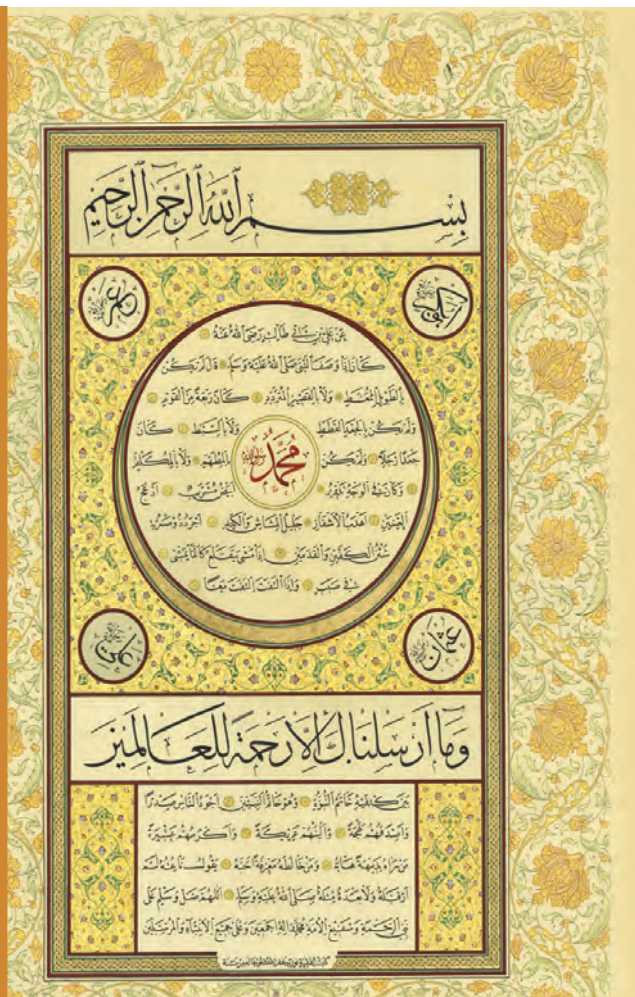 بِسْمِ اللهِ الرَّحْمٰنِ الرَّحِيمِ
عمر
عَنْ عَلِيِّ بْنِ أَبِي طَالِبٍ رَضِيَ اللهُ عَنْهُ
كَانَ إِذَا وَصَفَ النَّبِيَّ صَلَّى اللهُ عَلَيْهِ وَسَلَّمَ قَالَ لَمْ يَكُنْ
بِالطَّوِيلِ الْمُمَّغِطِ وَلَا بِالْقَصِيرِ الْمُتَرَدِّدِ كَانَ رَبْعَةً مِنَ الْقَوْمِ
وَلَمْ يَكُنْ بِالْجَعْدِ الْقَطَطِ وَلَا بِالسَّبِطِ كَانَ
مُحَمَّد
جَعْدًا رَجِلًا وَلَمْ يَكُنْ بِالْمُطَهَّمِ وَلَا بِالْمُكَلْثَمِ
وَكَانَ فِي الْوَجْهِ تَدْوِيرٌ أَبْيَضُ مُشْرَبٌ أَدْعَجُ
الْعَيْنَيْنِ أَهْدَبُ الْأَشْفَارِ جَلِيلُ الْمُشَاشِ وَالْكَتِدِ أَجْرَدُ ذُو مَسْرُبَةٍ
شَثْنُ الْكَفَّيْنِ وَالْقَدَمَيْنِ إِذَا مَشَى يَتَقَلَّعُ كَأَنَّمَا يَمْشِي
فِي صَبَبٍ وَإِذَا الْتَفَتَ الْتَفَتَ مَعًا
عثمان
علي
وَمَا أَرْسَلْنَاكَ إِلَّا رَحْمَةً لِلْعَالَمِينَ
بَيْنَ كَتِفَيْهِ خَاتَمُ النُّبُوَّةِ وَهُوَ خَاتَمُ النَّبِيِّينَ أَجْوَدُ النَّاسِ صَدْرًا
وَأَصْدَقُهُمْ لَهْجَةً وَأَلْيَنُهُمْ عَرِيكَةً وَأَكْرَمُهُمْ عَشِيرَةً
مَنْ رَآهُ بَدِيهَةً هَابَهُ وَمَنْ خَالَطَهُ مَعْرِفَةً أَحَبَّهُ يَقُولُ نَاعِتُهُ لَمْ
أَرَ قَبْلَهُ وَلَا بَعْدَهُ مِثْلَهُ صَلَّى اللهُ عَلَيْهِ وَسَلَّمَ اللّٰهُمَّ صَلِّ وَسَلِّمْ عَلَى
نَبِيِّ الرَّحْمَةِ وَشَفِيعِ الْأُمَّةِ مُحَمَّدٍ وَآلِهِ أَجْمَعِينَ وَعَلَى جَمِيعِ الْأَنْبِيَاءِ وَالْمُرْسَلِينَ